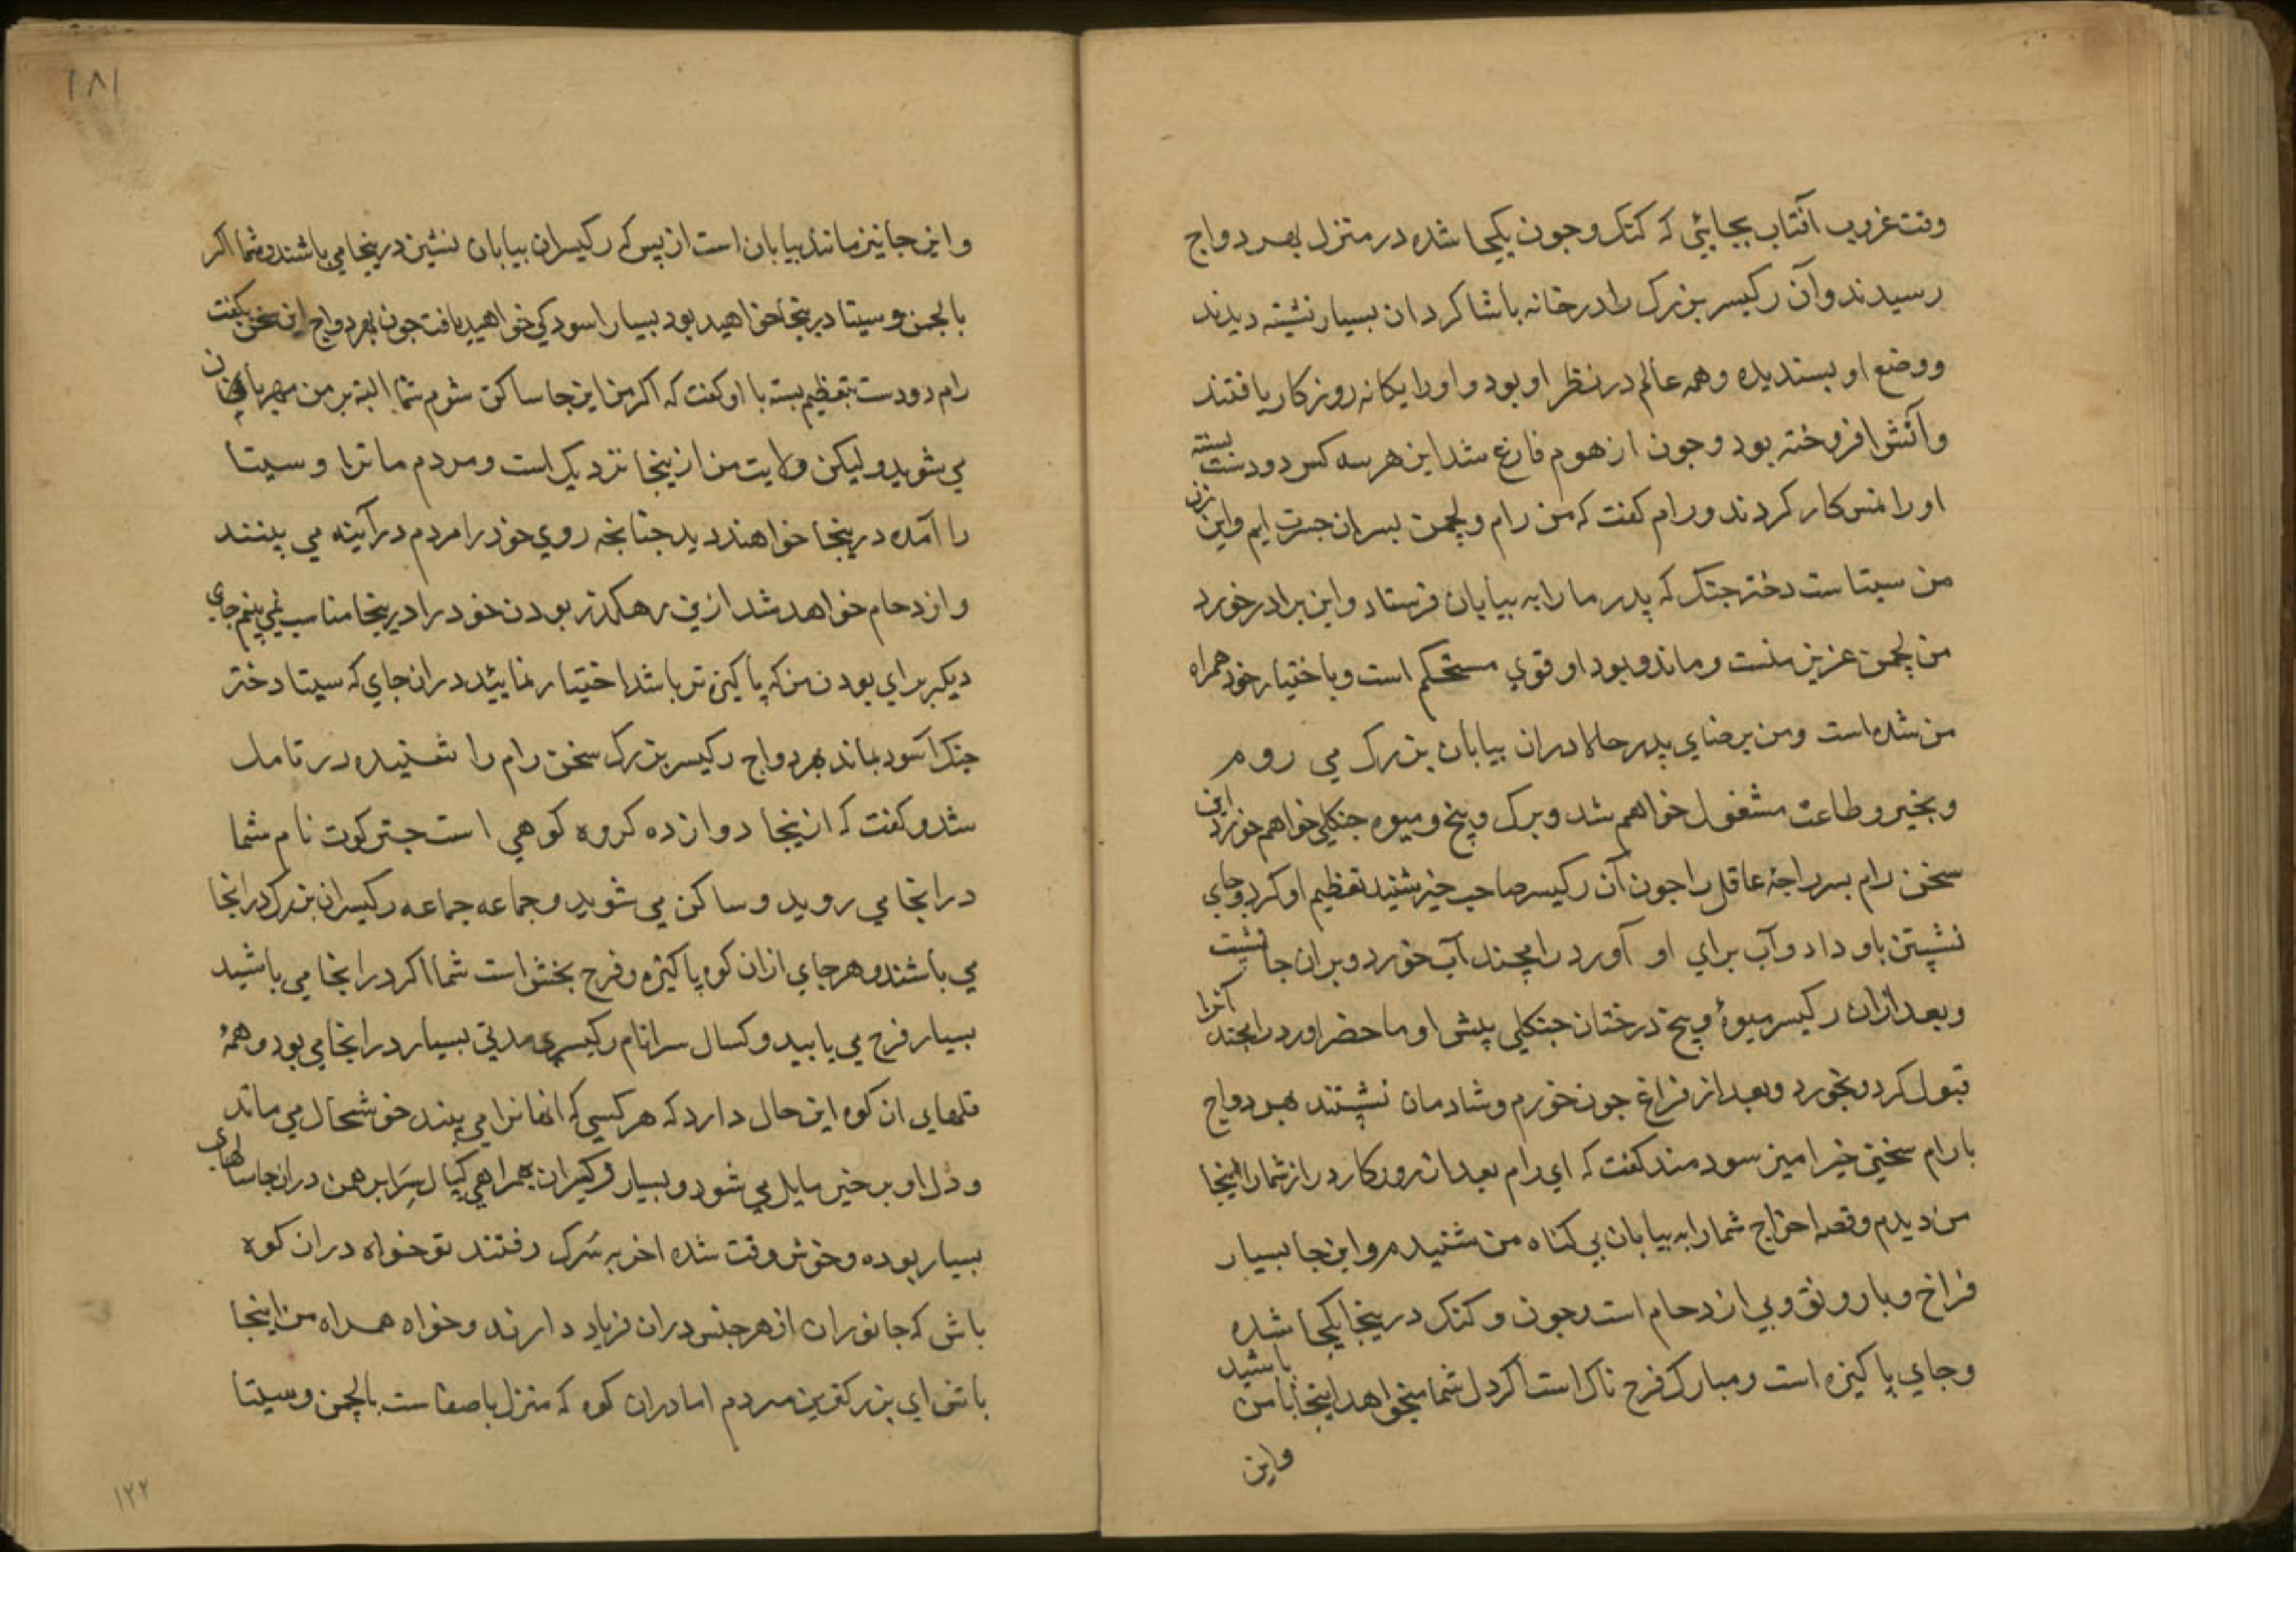 وقت غروب آفتاب بجائی که کنک و جون یکجا شده در منزل بهردواج
رسیدند و آن رکیسر بزرک را در خانه با شاکردان بسیار نشسته دیدند
و وضع او بسندیده و همه عالم در نظر او بود و او را یکانه روزکار یافتند
و آتش افروخته بود و جون از هوم فارغ شد این هر سه کس دو دست بسته
او را نمسکار کردند و رام کفت که من رام و لچمن بسران جسرت ایم و این زن
من سیتاست دختر جنک که پدر ما را به بیابان فرستاد و این برادر خورد
من لچمن عزیز منست و ماند و بود او قوی مستحکم است و باختیار خود همراه
من شده است و من برضای پدر حالا دران بیابان بزرک می روم
و بخیر و طاعت مشغول خواهم شد و برک و بیخ و میوه جنکلی خواهم خورد این
سخن رام بسر راجهٔ عاقل را جون آن رکیسر صاحب خیر شنید تعظیم او کرد و جای
نشستن باو داد و آب برای او آورد رامچند آب خورد و بران جا نشست
و بعد ازان رکیسر میوهٔ و بیخ درختان جنکلی پیش او ما حضر اورد رامچند آنرا
قبول کرد و بخورد و بعد از فراغ جون خورم و شادمان نشستند بهردواج
با رام سخنی خیرامیز سودمند کفت که ای رام بعد از روزکار دراز شما را اینجا
من دیدم و قصه اخراج شما را به بیابان بی کناه من شنیدم و این جا بسیار
فراخ و با رونق و بی ازدحام است و جون و کنک درینجا یکجا شده
و جای پاکیزه است و مبارک فرح ناک است اکر دل شما میخواهد اینجا با من باشید
واین
۱۸۱
و این جا نیز مانند بیابان است از بس که رکیسران بیابان نشین درینجا می باشند و شما اکر
با لچمن و سیتا درینجا خواهید بود بسیار اسودکی خواهید یافت جون بهردواج این سخن بکفت
رام دو دست بتعظیم بسته با او کفت که اکر من این جا ساکن شوم شما البته بر من مهربان
می شوید و لیکن ولایت من ازینجا نزدیک است و مردم ما ترا و سیتا
را آمده درینجا خواهند دید جنانچه روی خود را مردم در آینه می بینند
و ازدحام خواهد شد ازین رهکذر بودن خود را درینجا مناسب نمی بینم جای
دیکر برای بودن من که پاکیزه تر باشد اختیار نمایید دران جای که سیتا دختر
جنک آسود بماند بهردواج رکیسر بزرک سخن رام را شنیده در تامل
شد و کفت که ازینجا دوازده کروه کوهی است جترکوت نام شما
درانجا می روید و ساکن می شوید و جماعه جماعه رکیسران بزرک درانجا
می باشند و هر جای ازان کوه پاکیزه و فرح بخش است شما اکر درانجا می باشید
بسیار فرح می یابید و کسال سرانام رکیسری مدتی بسیار درانجا می بود و همهٔ
قلهای ان کوه این حال دارد که هر کسی که انها را می بیند خوشحال می ماند
و دل او بر خیر مایل می شود و بسیار رکیسران بهمراهی کپال سرا برهمن دران جا سالهای
بسیار بوده و خوش وقت شده اخر به سرک رفتند تو خواه دران کوه
باش که جانوران از هر جنس دران فریاد دارند و خواه همراه من اینجا
باش ای بزرکترین مردم اما دران کوه که منزل با صفاست با لچمن و سیتا
۱۲۲